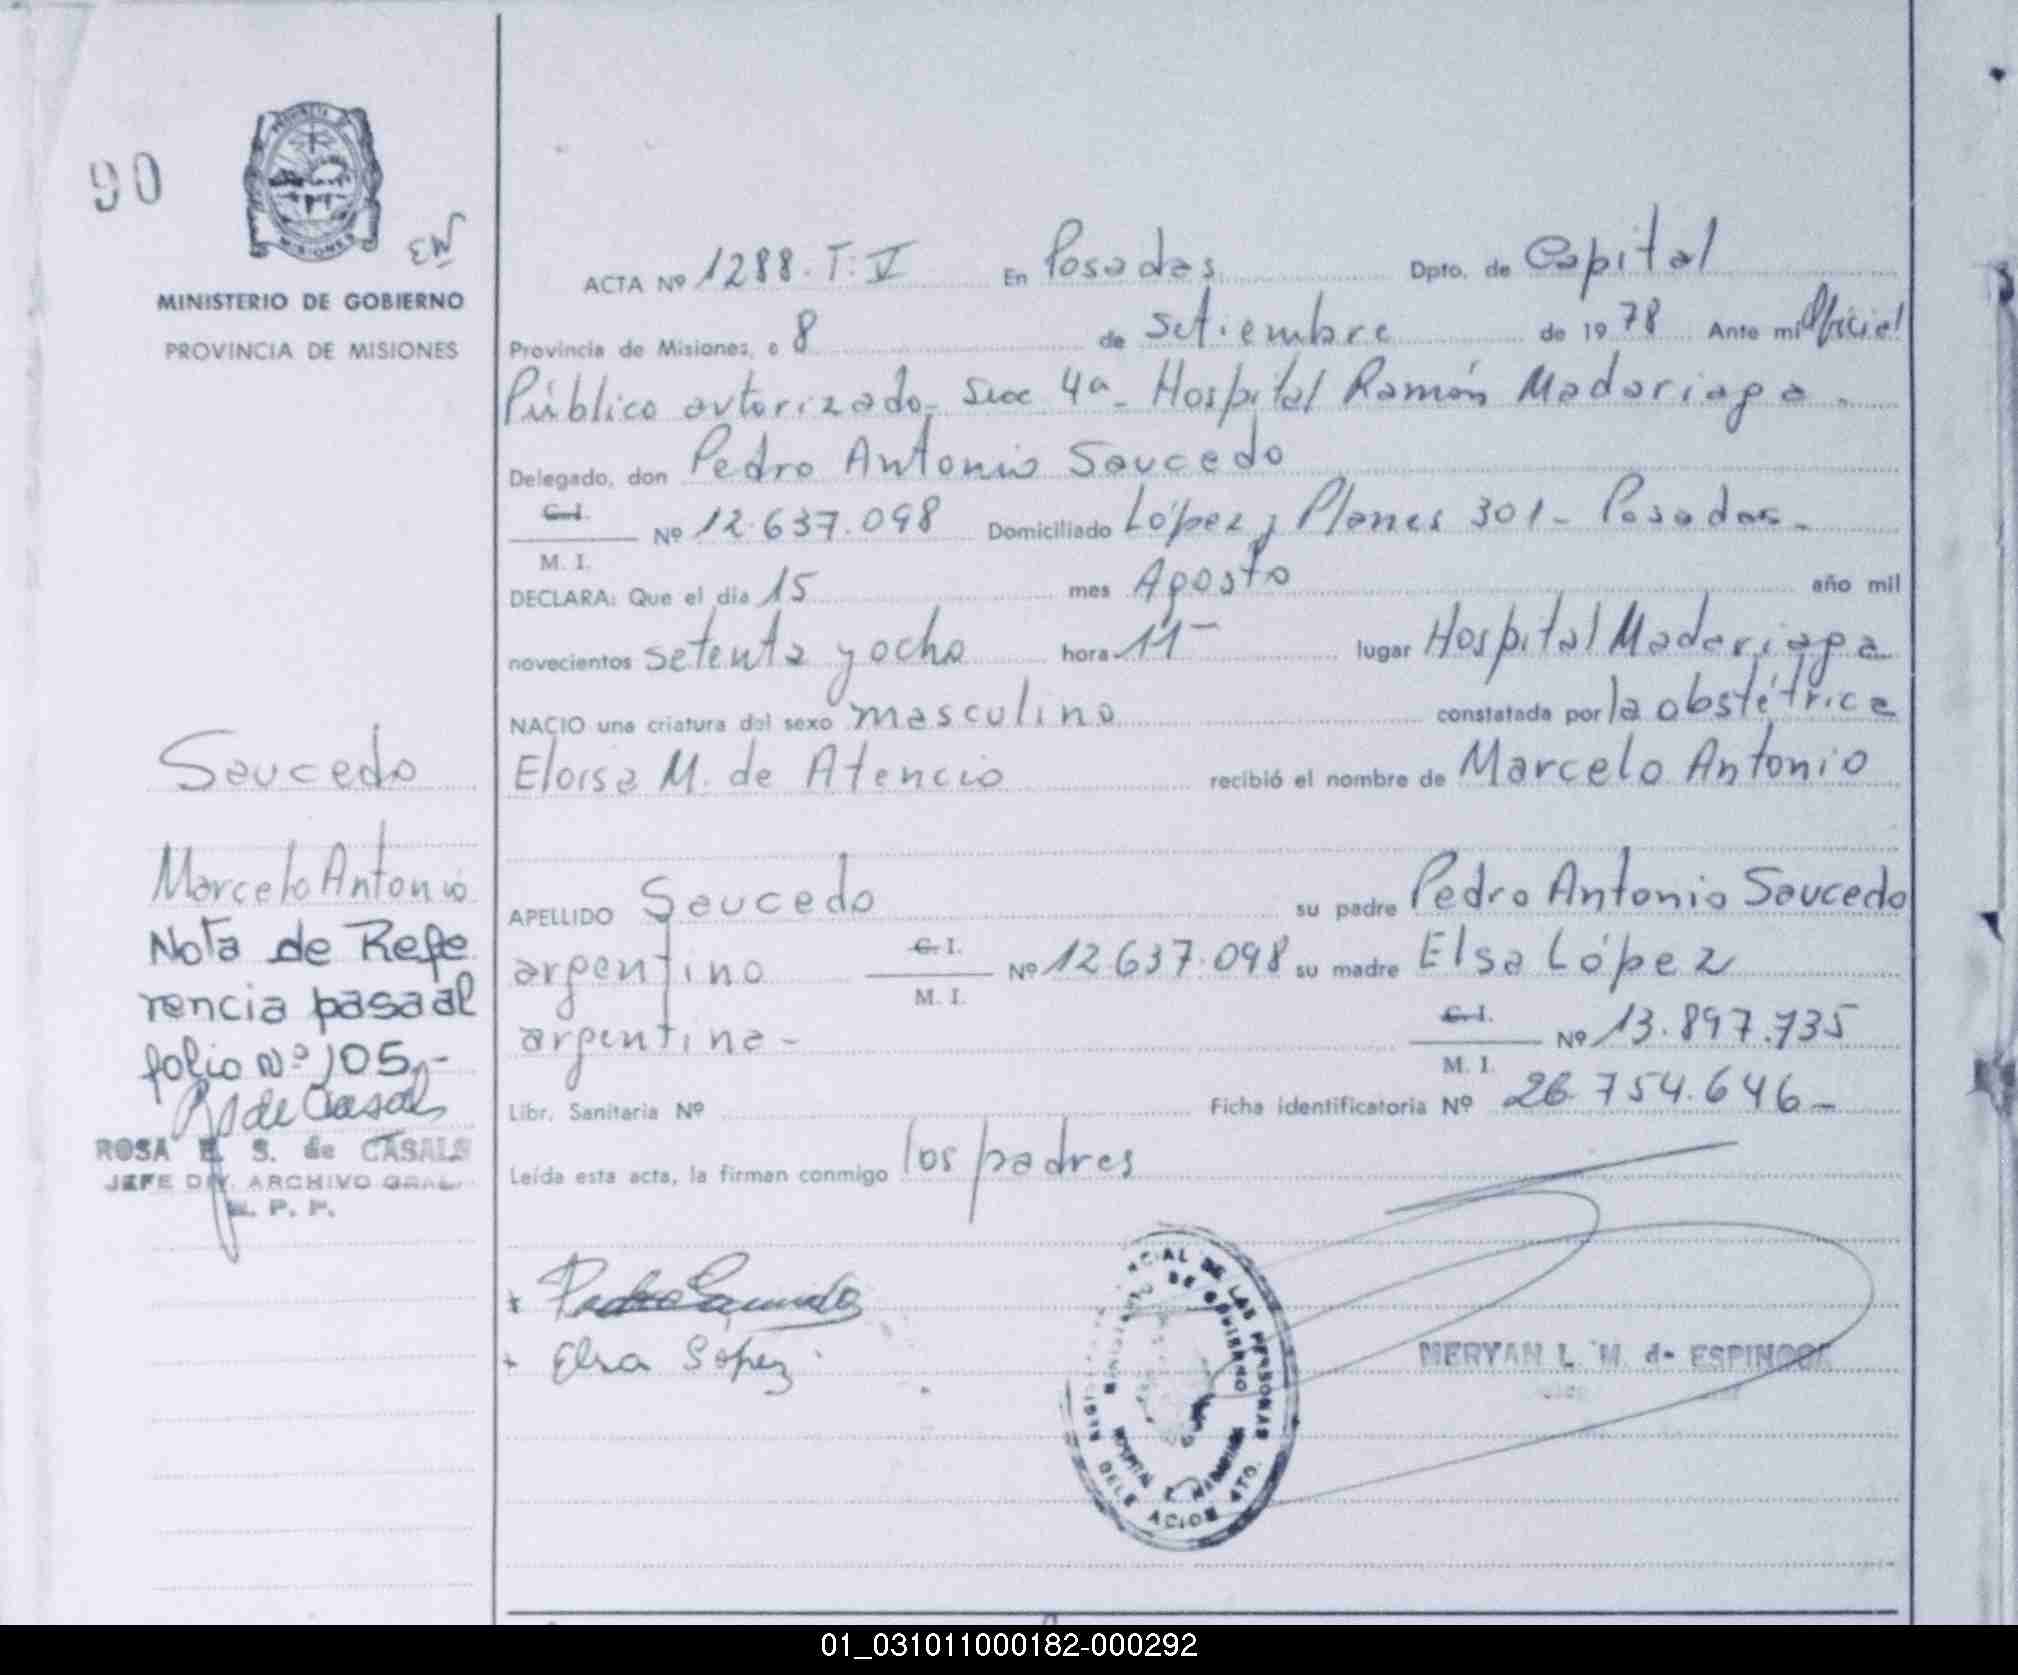 90
PROVINCIA D
MISIONES
MINISTERIO DE GOBIERNO
PROVINCIA DE MISIONES
ACTA Nº 1288. T: V En Posadas Dpto. de Capital
Provincia de Misiones, a 8 de setiembre de 1978 Ante mi Oficial
Público autorizado- Secc 4ª- Hospital Ramón Madariaga -
Delegado, don Pedro Antonio Saucedo
C.I.
M. I. Nº 12.637.098 Domiciliado López y Planes 301- Posadas-
DECLARA: Que el dia 15 mes Agosto año mil
novecientos setenta y ocho hora 11- lugar Hospital Madariaga
NACIO una criatura del sexo masculino constatada por la obstétrica
Eloisa M. de Atencio recibió el nombre de Marcelo Antonio
APELLIDO Saucedo su padre Pedro Antonio Saucedo
argentino C.I.
M. I. Nº 12.637.098 su madre Elsa López
argentina- C.I.
M. I. Nº 13.897.735
Libr. Sanitaria Nº Ficha identificatoria Nº 26.754.646-
Leída esta acta, la firman conmigo los padres
Saucedo
Marcelo Antonio
Nota de Refe
rencia pasa al
folio Nº 105.-
de Casals
ROSA E. S. de CASALS
JEFE DIV. ARCHIVO GRAL.
R. P. P.
+ Pedro Saucedo
+ Elsa Lopez
CIAL DE LAS PERSONAS
MINISTERIO DE GOBIERNO
HOSPITAL R. MADARIAGA
DELEGACION
MERYAN L. M. de ESPINOSA
01_031011000182-000292